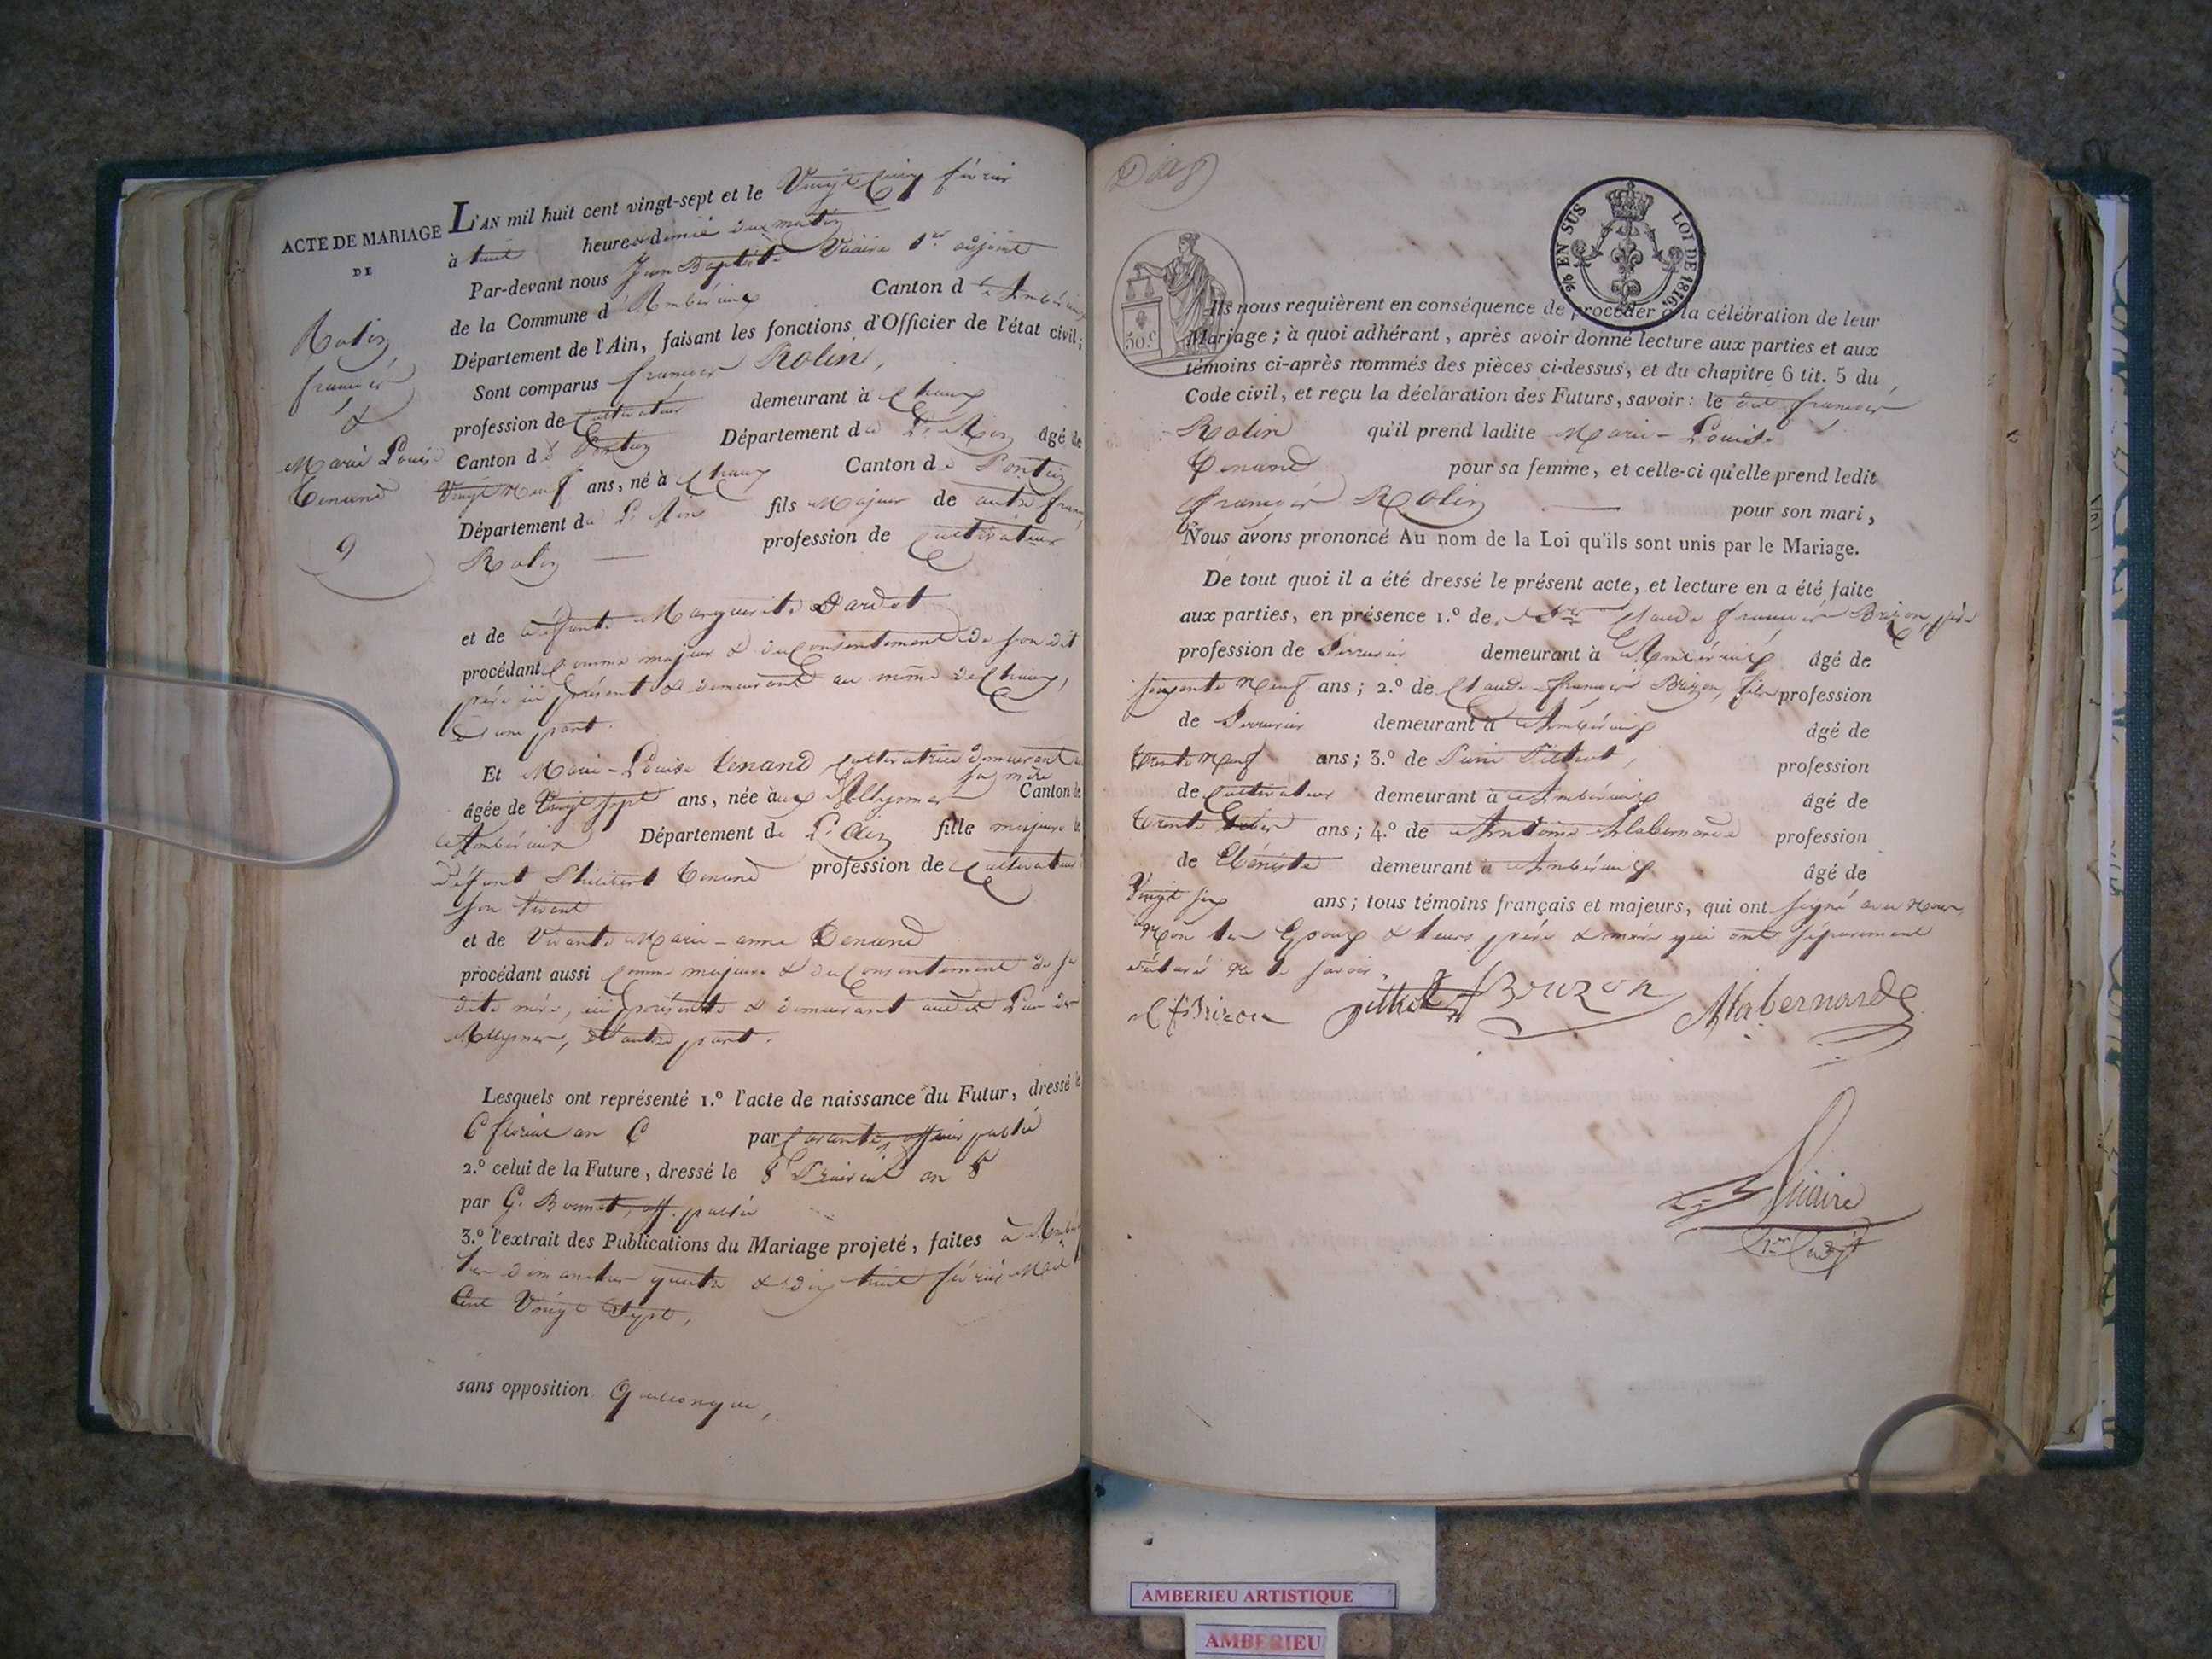 ACTE DE MARIAGE
DE
Rolin
françois
&
Marie Louise
Tenand
9
L'AN mil huit cent vingt-sept et le Vingt Cinq février
à huit heures & demie du matin
Par-devant nous Jean Baptiste Vicaire 1er adjoint
de la Commune d'Ambérieux Canton d'Ambérieux
Département de l'Ain, faisant les fonctions d'Officier de l'état civil;
Sont comparus françois Rolin,
profession de Cultivateur demeurant à
Canton de Pontcin Département de L'Ain âgé de
Vingt neuf ans, né à Canton de Pontcin
Département de L'Ain fils Majeur de autre
Rolin profession de Cultivateur
et de défunte Marguerite Dardet
procédant Comme majeur & du Consentement de son dit
père ici présent & demeurant au même
d'une part.
Et Marie-Louise tenand, Cultivatrice demeurant
âgée de Vingt sept ans, née aux Allymes Canton de
Ambérieux Département de L'Ain fille majeure de
défunt Philibert Tenand profession de Cultivateur
son vivant
et de Vivante Marie-anne Tenand
procédant aussi Comme majeure & du Consentement de sa
dite mère, ici présente & demeurant audit Lieu des
Allymes, d'autre part.
Lesquels ont représenté 1.° l'acte de naissance du Futur, dressé le
6 floréal an 6 par officier public
2.° celui de la Future, dressé le 8 Prairial an 8
par G. Bonnet, off. public
3.° l'extrait des Publications du Mariage projeté, faites à
les dimanches quatre & dix huit février Mil
Cent Vingt Sept,
sans opposition Quelconque,
50.c
EN SUS
LOI DE 1816.
Ils nous requièrent en conséquence de procéder à la célébration de leur
Mariage; à quoi adhérant, après avoir donné lecture aux parties et aux
témoins ci-après nommés des pièces ci-dessus, et du chapitre 6 tit. 5 du
Code civil, et reçu la déclaration des Futurs, savoir: le dit françois
Rolin qu'il prend ladite Marie-Louise
Tenand pour sa femme, et celle-ci qu'elle prend ledit
françois Rolin pour son mari,
Nous avons prononcé Au nom de la Loi qu'ils sont unis par le Mariage.
De tout quoi il a été dressé le présent acte, et lecture en a été faite
aux parties, en présence 1.° de Sr Claude françois Brizon, père
profession de Serrurier demeurant à Ambérieux âgé de
soixante Neuf ans; 2.° de Claude-françois Brizon, fils profession
de Serrurier demeurant à Ambérieux âgé de
trente neuf ans; 3.° de Pierre profession
de Cultivateur demeurant à Ambérieux âgé de
Trente ans; 4.° de Antoine Alabernarde profession
de Ebéniste demeurant à Ambérieux âgé de
Vingt six ans; tous témoins français et majeurs, qui ont signé avec nous,
Non les Epoux & leurs père & mère qui ont séparément
déclaré ne le savoir.
Cf Brizon Brizon Alabernarde
Vicaire
1er adjt
AMBERIEU ARTISTIQUE
AMBERIEU